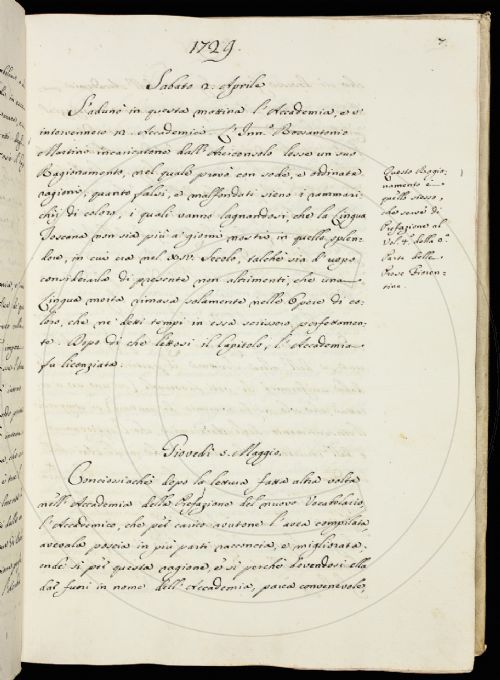 1729.
7.
Sabato 2. Aprile
S'adunò in questa mattina l'Accademia, e v'
intervennero 12. Accademici. L'Inn.º Rosantonio
Martini incaricatone dall'Arciconsolo lesse un suo
Ragionamento, nel quale provò con sode, e ordinate
ragioni, quanto falsi, e malfondati sieno i rammari-
chij di coloro, i quali vanno lagnandosi, che la Lingua
Toscana non sia più a' giorni nostri in quello splen-
dore, in cui era nel XIV. Secolo, talchè sia d'uopo
considerarla di presente non altrimenti, che una
Lingua morta rimasa solamente nelle Opere di co-
loro, che ne' detti tempi in essa scrissero perfettamen-
te. Dopo di che lettosi il Capitolo, l'Accademia
fu licenziata.
Questo Ragio-
namento è
quello stesso,
che servì di
Prefazione al
Vol. 4. della 2.ª
Parte delle
Prose Fioren-
tine.
Giovedì 5. Maggio
Conciossiachè dopo la lettura fatta altra volta
nell'Accademia della Prefazione del nuovo Vocabolario,
l'Accademico, che per carico avutone l'avea compilata,
aveala poscia in più parti racconcia, e migliorata,
onde sì per questa ragione, e sì perchè devendosi ella
dar fuori in nome dell'Accademia, parea convenevole,